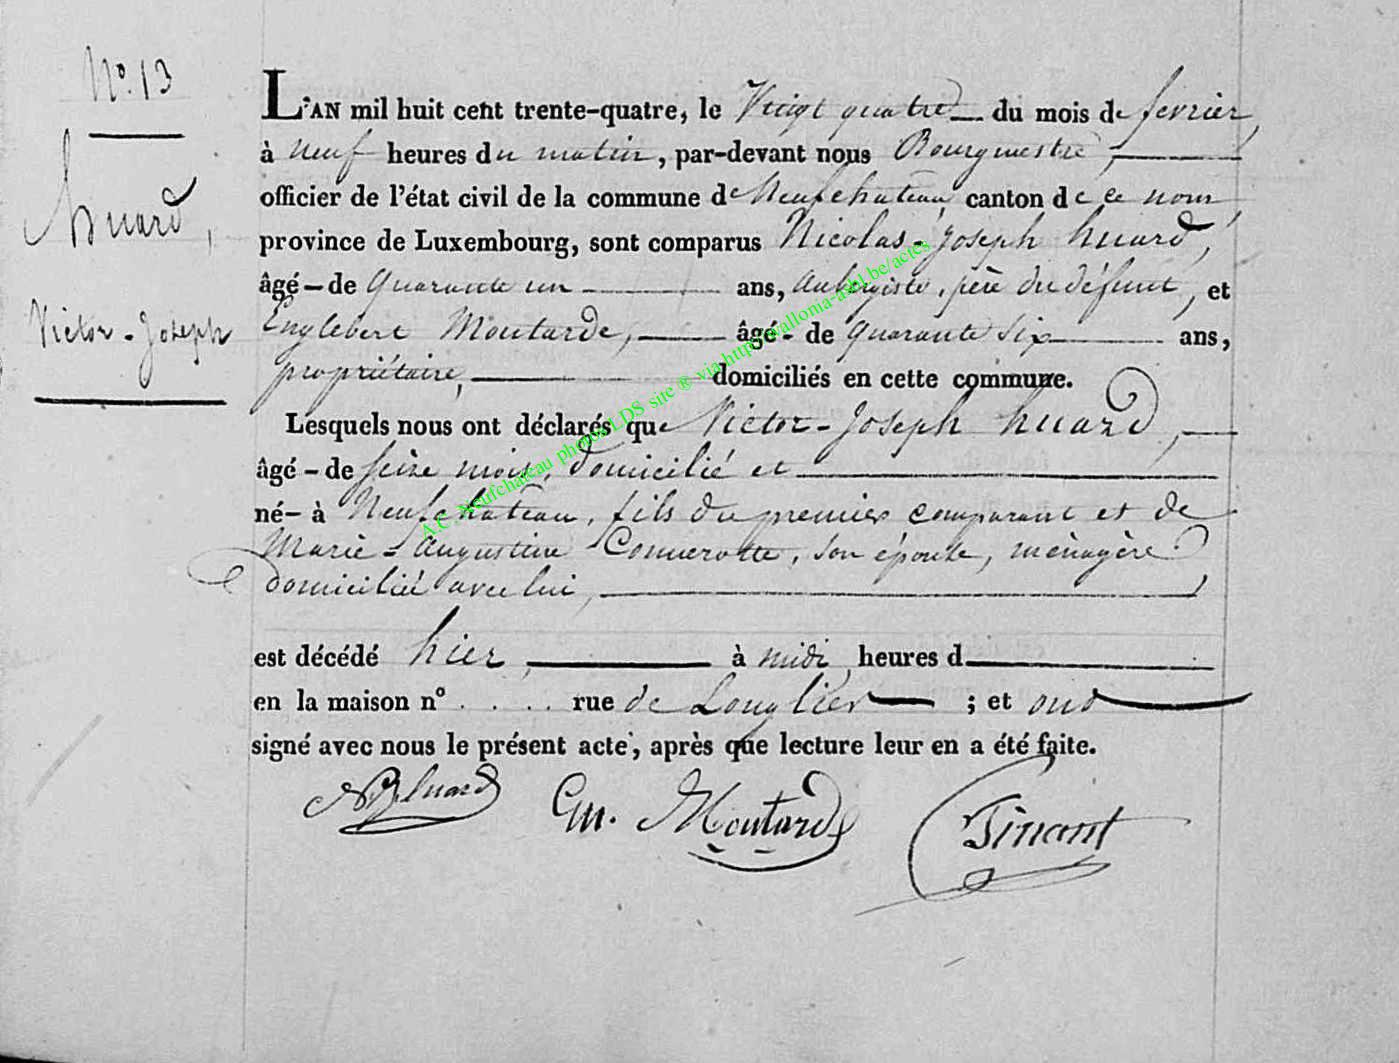 N° 13
huard,
Victor-Joseph
L'AN mil huit cent trente-quatre, le Vingt quatre du mois de fevrier,
à neuf heures du matin, par-devant nous Bourgmestre,
officier de l'état civil de la commune de Neufchateau canton de ce nom,
province de Luxembourg, sont comparus Nicolas-Joseph huard,
âgé - de quarante un ans, aubergiste, père du défunt, et
Englebert Moutarde, âgé - de quarante six ans,
propriétaire, domiciliés en cette commune.
Lesquels nous ont déclarés que Victor-Joseph huard,
âgé - de seize mois, domicilié et
né - à Neufchateau, fils du premier comparant et de
Marie-Augustine Connerotte, son épouse, ménagère
domicilié avec lui,
est décédé hier, à midi heures d
en la maison n° . . . . rue de Longlier ; et ont
signé avec nous le présent acte, après que lecture leur en a été faite.
NJ huard Em. Moutarde Tinant
A.C. Neufchateau photos LDS site ® via http://wallonia-asbl.be/actes